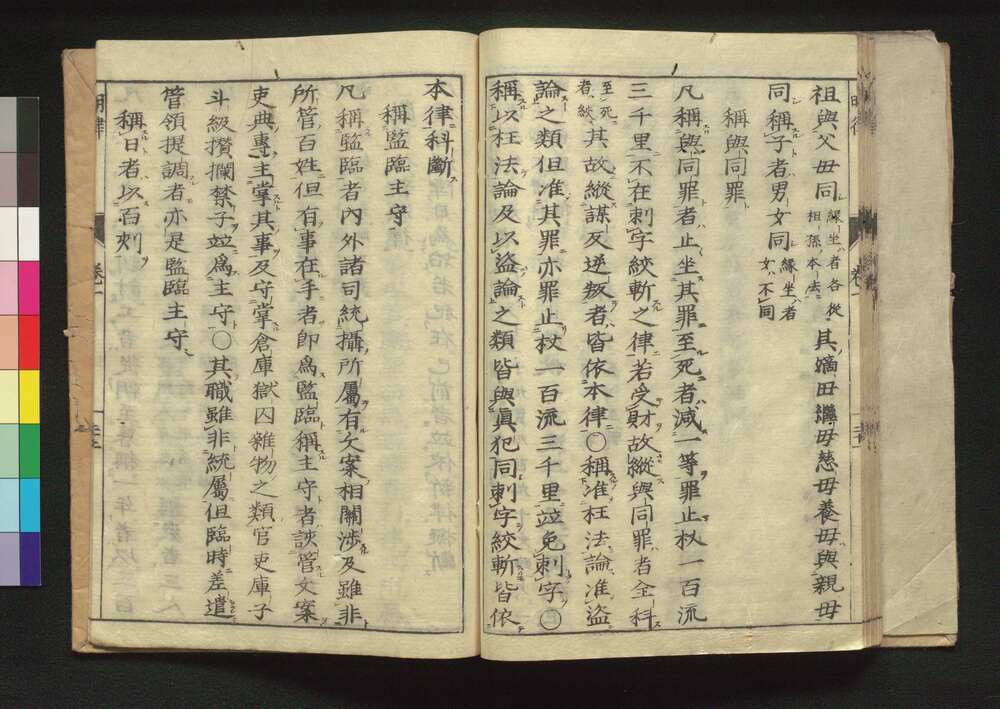 祖與父母同
縁坐者各從
祖孫本法
其嫡母繼母慈母養母與親母
同稱子者男女同
縁坐者
女不同
稱與同罪
凡稱與同罪者止坐其罪至死者減一等罪止杖一百流
三千里不在刺字絞斬之律若受財故縱與同罪者全科
至死
者絞
其故縱謀反逆叛者皆依本律〇稱准枉法論准盜
論之類但准其罪亦罪止杖一百流三千里竝免刺字〇
稱以枉法論及以盜論之類皆與眞犯同刺字絞斬皆依
本律科斷
稱監臨主守
凡稱監臨者內外諸司統攝所屬有文案相關涉及雖非
所管百姓但有事在手者卽爲監臨稱主守者該管文案
吏典專主掌其事及守掌倉庫獄囚雜物之類官吏庫子
斗級攢攔禁子竝爲主守〇其職雖非統屬但臨時差遣
管領提調者亦是監臨主守
稱日者以百刻
明律
卷一